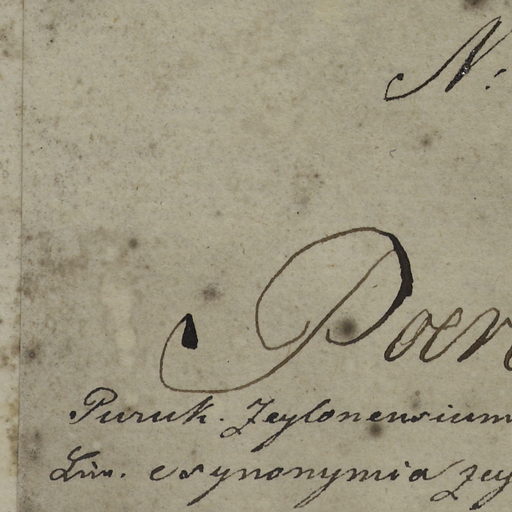 N:
Poer
Puruk. Zeylonensium
Lin. e synonymia Zey